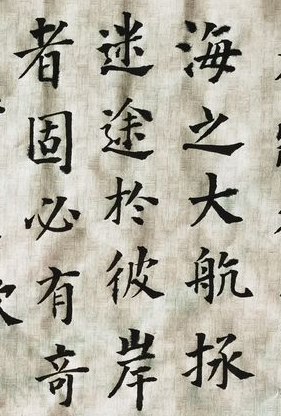 海之大航拯
迷途於彼岸
者固必有奇